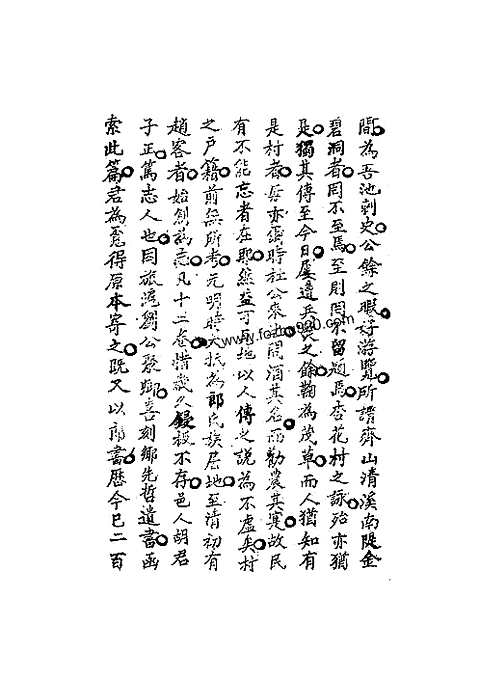 間為吾池刺史公餘之暇好游覽所謂齊山清溪南隄金
碧洞者罔不至焉至則罔不留題焉杏花村之詠殆亦猶
是獨其傳至今日屢遭兵災之餘鞠為茂草而人猶知有
是村者吾亦謂時社公來此問酒其名而勸農其寔故民
有不能忘者在耶然益可見地以人傳之說為不虛矣村
之戶籍前無所考元明時大抵為郎氏族居地至清初有
趙客者始創為志凡十二卷惜歲久鋟板不存邑人胡君
子正篤志人也同旅滬劉公聚卿喜刻鄉先哲遺書函
索此篇君為覓得原本寄之既又以郎書歷今已二百
www.fozhu920.com